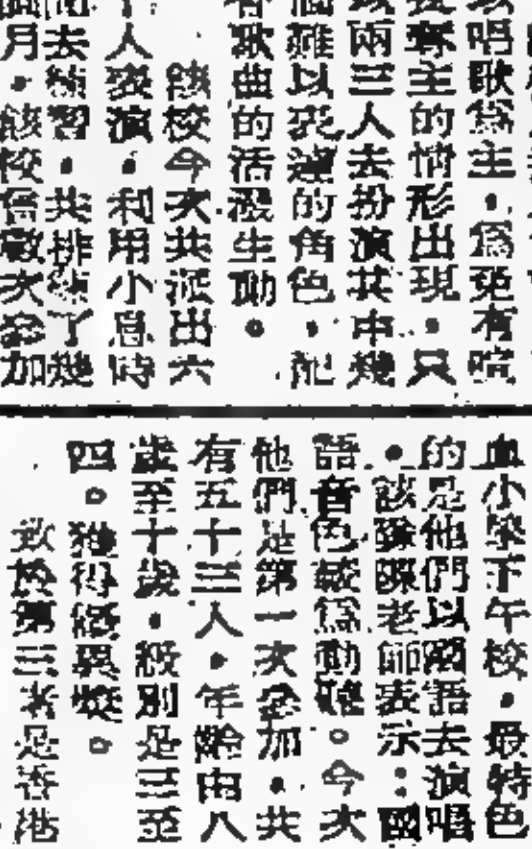 唱歌為主,為免有喧
奪主的情形出現,只
兩三人去扮演其中幾
個難以表達的角色,配
着歌曲的活潑生動。
該校今次共派出六
十人表演,利用小息時
間去練習,共排練了幾
個月,該校曾數次參加
血小學下午校,最特色
的是他們以國語去演唱
,該隊陳老師表示:國
語音色較為動聽。今次
他們是第一次參加,共
有五十三人,年齡由八
歲至十歲,級別是三至
四。獲得優異獎。
致於第三者是香港